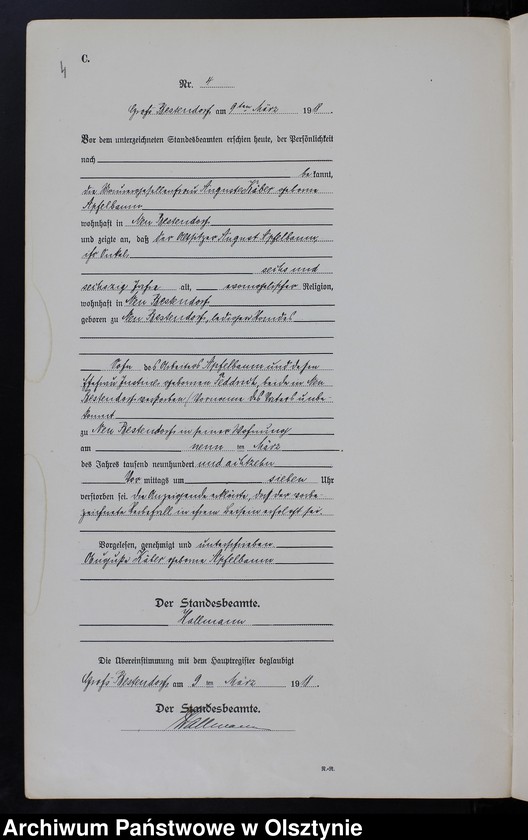 4
C.
Nr. 4
Groß Bestendorf am 9ten März 1918.
Vor dem unterzeichneten Standesbeamten erschien heute, der Persönlichkeit
nach
bekannt,
die Auguste Käber geborne
Apfelbaum
wohnhaft in Neu Bestendorf
und zeigte an, daß der Altsitzer August Apfelbaum,
ihr Onkel
sechs und
sechszig Jahre alt, evangelischer Religion,
wohnhaft in Neu Bestendorf
geboren zu Neu Bestendorf, ledigen Standes
Sohn des Arbeiters Apfelbaum und dessen
Ehefrau geborenen beide in Neu
Bestendorf verstorben, Vorname des Vaters unbe-
kannt
zu Neu Bestendorf in seiner Wohnung
am neun ten März
des Jahres tausend neunhundert und achtzehn
Vor mittags um sieben Uhr
verstorben sei. Die Anzeigende erklärte, daß der vorbe-
zeichnete Sterbefall in ihrem Beisein erfolgt sei.
Vorgelesen, genehmigt und unterschrieben
Auguste Käber geborne Apfelbaum
Der Standesbeamte.
Hallmann
Die Übereinstimmung mit dem Hauptregister beglaubigt
Groß Bestendorf, am 9 ten März 1918.
Der Standesbeamte.
Hallmann
Archiwum Państwowe w Olsztynie